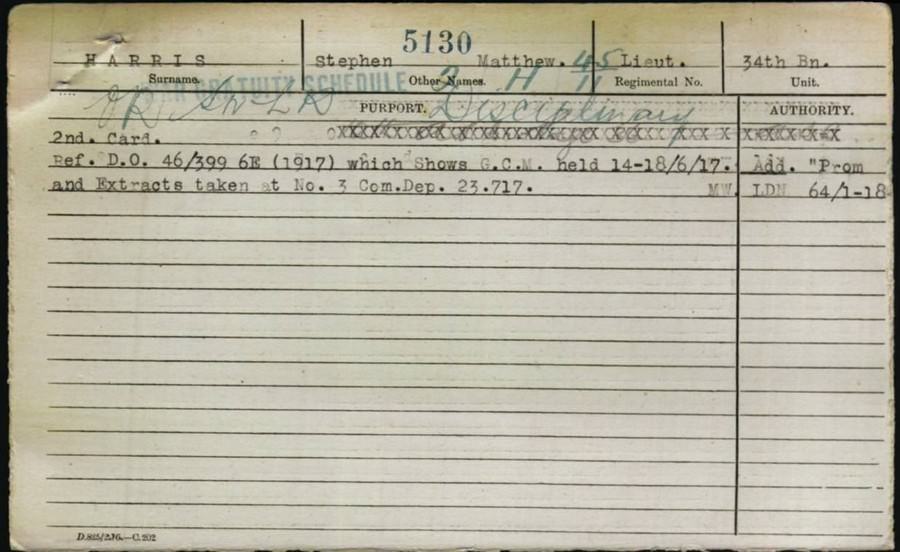 5130
HARRIS Stephen Matthew. 45 Lieut. 34th Bn.
Surname. Other Names. Regimental No. Unit.
GRATUITY SCHEDULE 2 H 11
PURPORT. Disciplinary AUTHORITY.
2nd. Card.
Ref. D.O. 46/399 6E (1917) which Shows G.C.M. held 14-18/6/17. Add. "Prom
and Extracts taken at No. 3 Com.Dep. 23.717. MW. LDN 64/1-18
D.825/2.16.—C.202